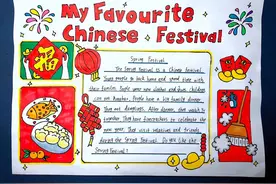 My Favourite
Chinese Festival
福
Spring Festival
The Spring Festival is a Chinese festival.
people go back home and good time with
their families. People wear new clothes and
children
have a big family dinner.
They eat dumplings. After dinner, they watch
together. They have fireworks to celebrate the
new year. They visit relatives and friends
during the Spring Festival. Do you like the
Spring Festival?